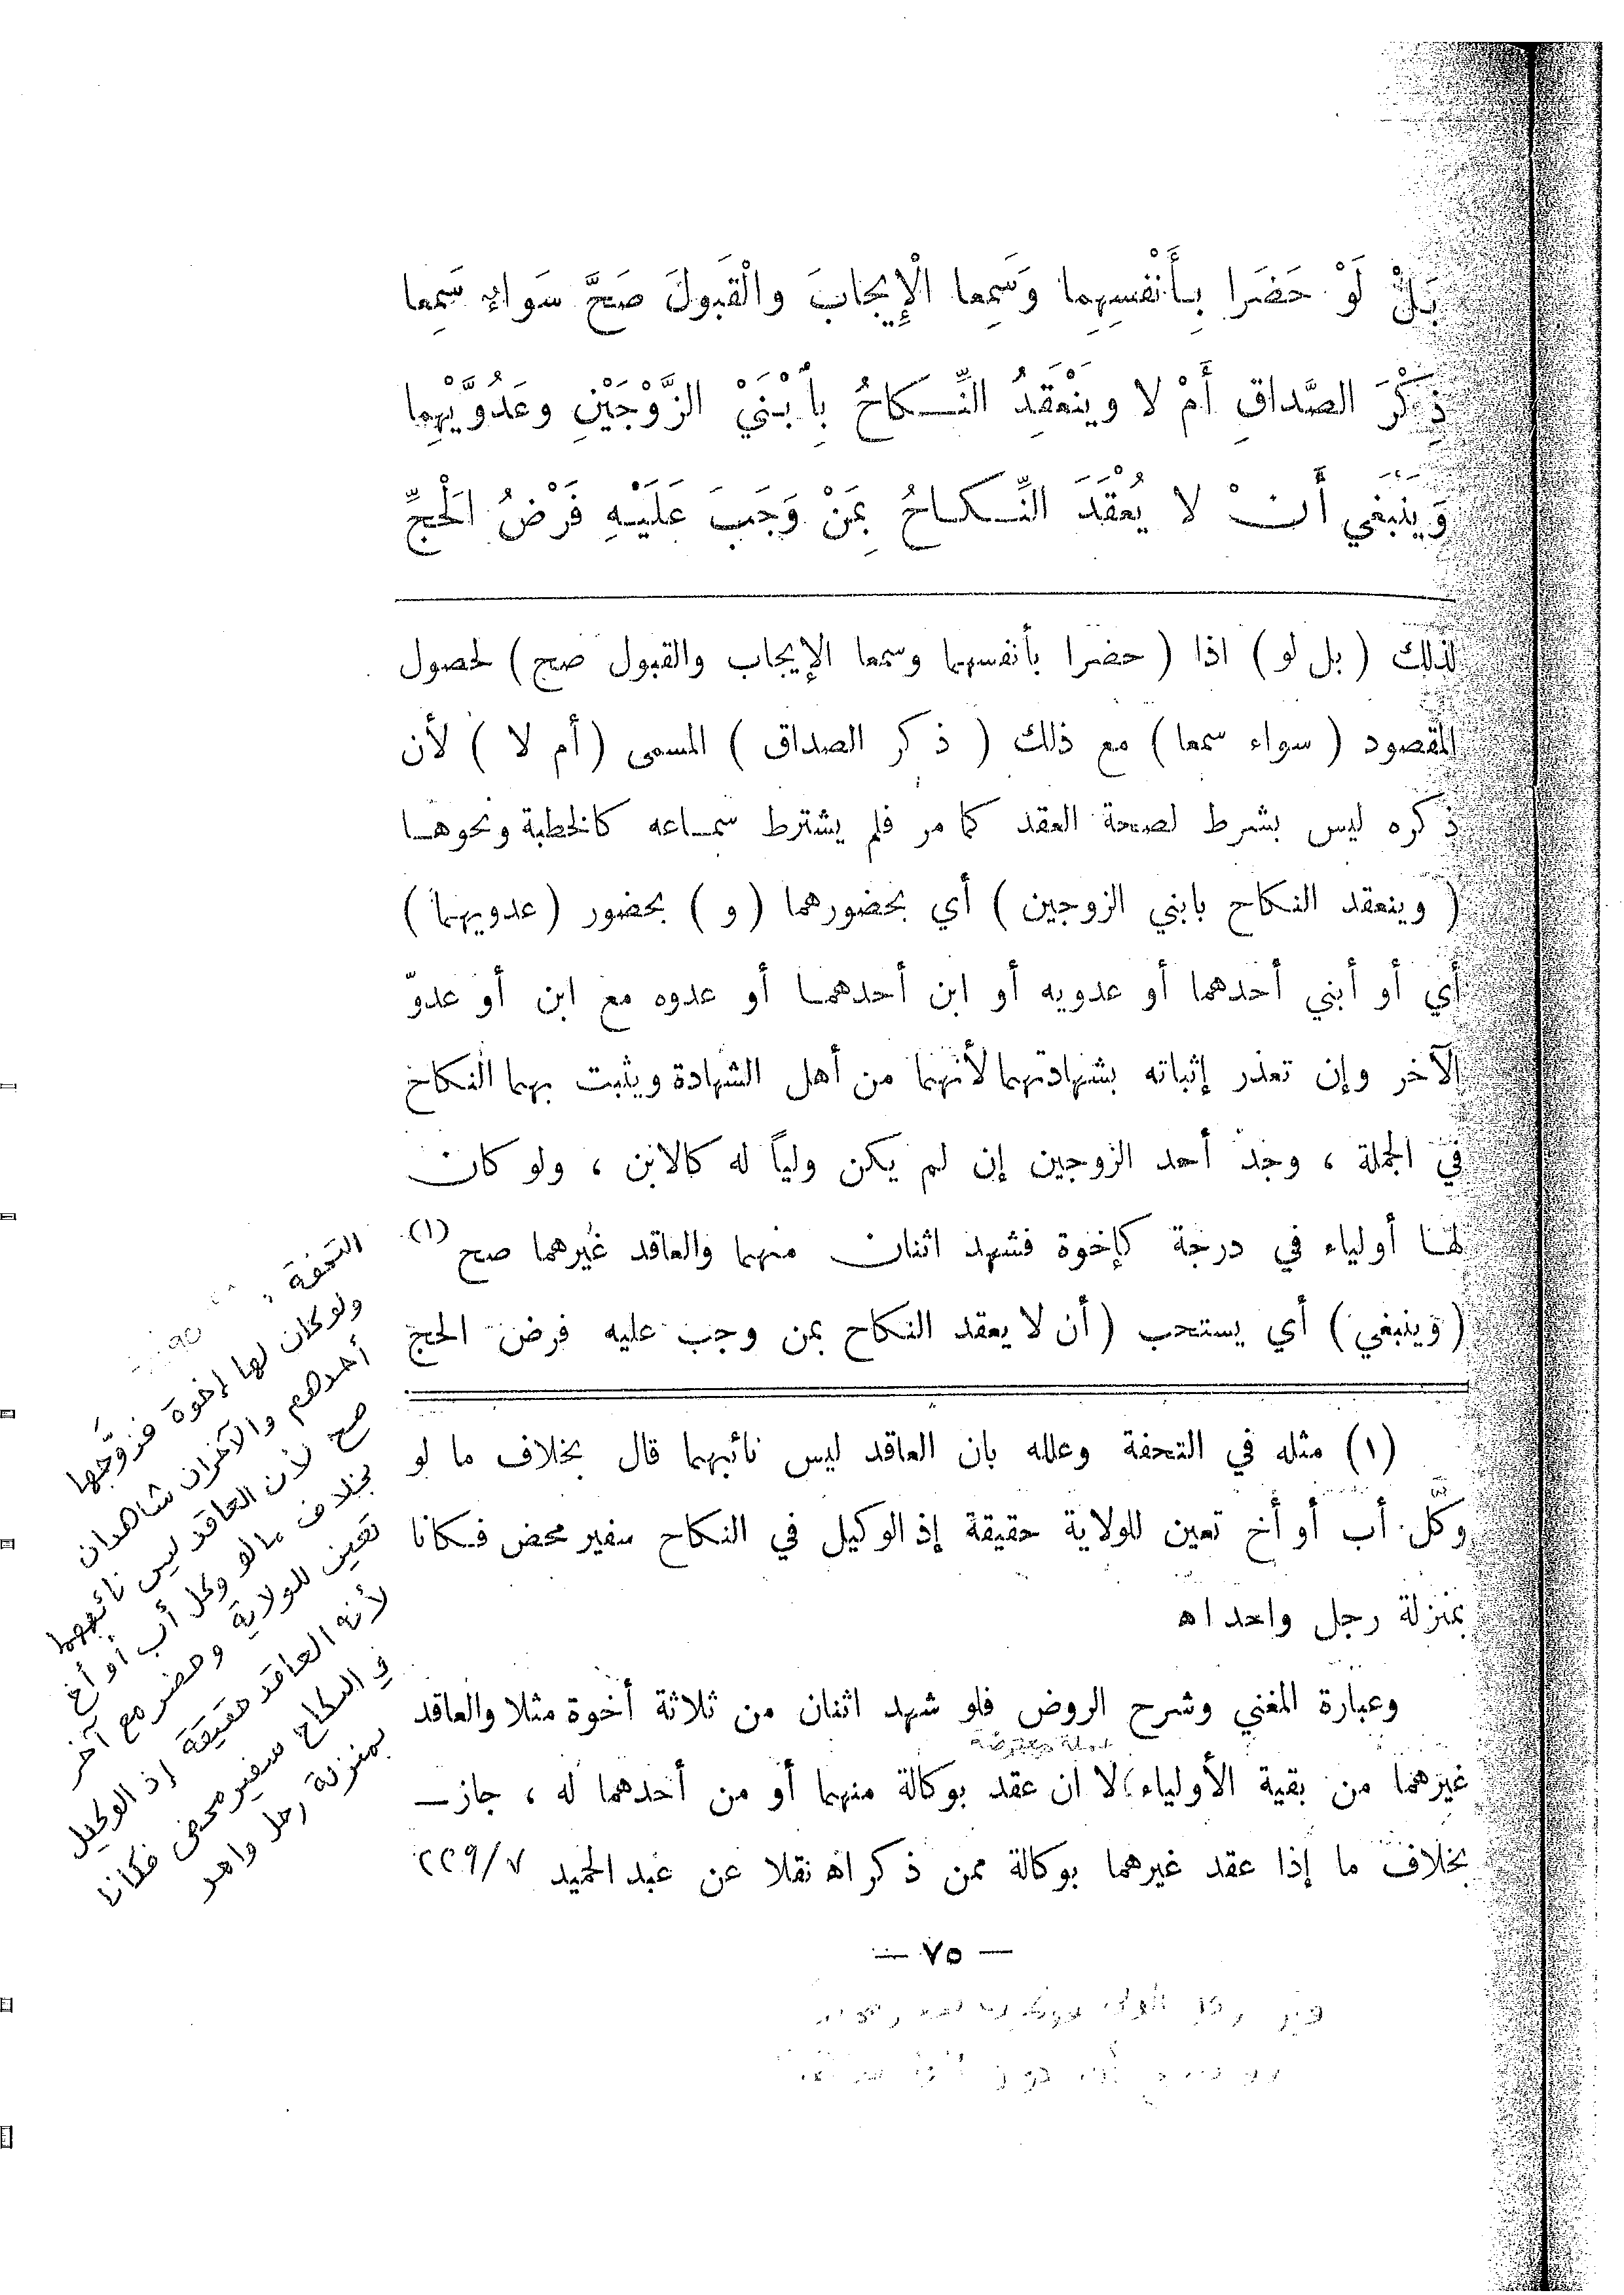 بَلْ لَوْ حَضَرَا بِأَنْفُسِهِما وَسَمِعا الْإِيجابَ والْقَبولَ صَحَّ سَواءٌ سَمِعا
ذِكْرَ الصَّداقِ أَمْ لا ويَنْعَقِدُ النِّكاحُ بِأَبْنَيْ الزَّوْجَيْنِ وعَدُوَّيْهِما
وَيَنْبَغي أَنْ لا يُعْقَدَ النِّكاحُ بِمَنْ وَجَبَ عَلَيْهِ فَرْضُ الْحَجِّ
لذلك ( بل لو ) اذا ( حضرا بأنفسهما وسمعا الإيجاب والقبول صح ) لحصول
المقصود ( سواء سمعا ) مع ذلك ( ذكر الصداق ) المسمى ( أم لا ) لأن
ذكره ليس بشرط لصحة العقد كما مر فلم يشترط سماعه كالخطبة ونحوها
( وينعقد النكاح بابني الزوجين ) أي بحضورهما ( و ) بحضور ( عدويهما )
أي أو أبني أحدهما أو عدويه أو ابن أحدهما أو عدوه مع ابن أو عدوّ
الآخر وإن تعذر إثباته بشهادتهما لأنهما من أهل الشهادة ويثبت بهما النكاح
في الجملة ، وجد أحد الزوجين إن لم يكن ولياً له كالابن ، ولو كان
لها أولياء في درجة كإخوة فشهد اثنان منهما والعاقد غيرهما صح (١)
( وينبغي ) أي يستحب ( أن لا يعقد النكاح بمن وجب عليه فرض الحج
(١) مثله في التحفة وعلله بان العاقد ليس نائبهما قال بخلاف ما لو
وكَّل أب أو أخ تعين للولاية حقيقة إذ الوكيل في النكاح سفير محض فكانا
بمنزلة رجل واحد اه
وعبارة المغني وشرح الروض فلو شهد اثنان من ثلاثة أخوة مثلا والعاقد
جملة معترضة
غيرهما من بقية الأولياء لا ان عقد بوكالة منهما أو من أحدهما له ، جاز
بخلاف ما إذا عقد غيرهما بوكالة ممن ذكر اه نقلا عن عبد الحميد ٢٢٩/٧
— ٧٥ —
التحفة
ولو كان لها إخوة فزوّجها
أحدهم والآخران شاهدان
صح لأن العاقد ليس نائبهما
بخلاف ما لو وكل أب أو أخ
تعين للولاية وحضر مع آخر
لأنه العاقد حقيقة إذ الوكيل
في النكاح سفير محض فكانا
بمنزلة رجل واحد